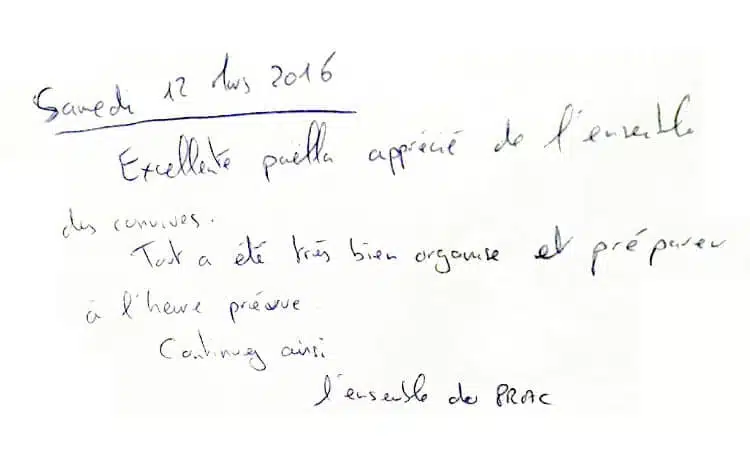 Samedi 12 Mars 2016
Excellente paëlla apprécié de l'ensemble
des convives.
Tout a été très bien organise et préparer
à l'heure prévue
Continuez ainsi
l'ensemble du PRAC